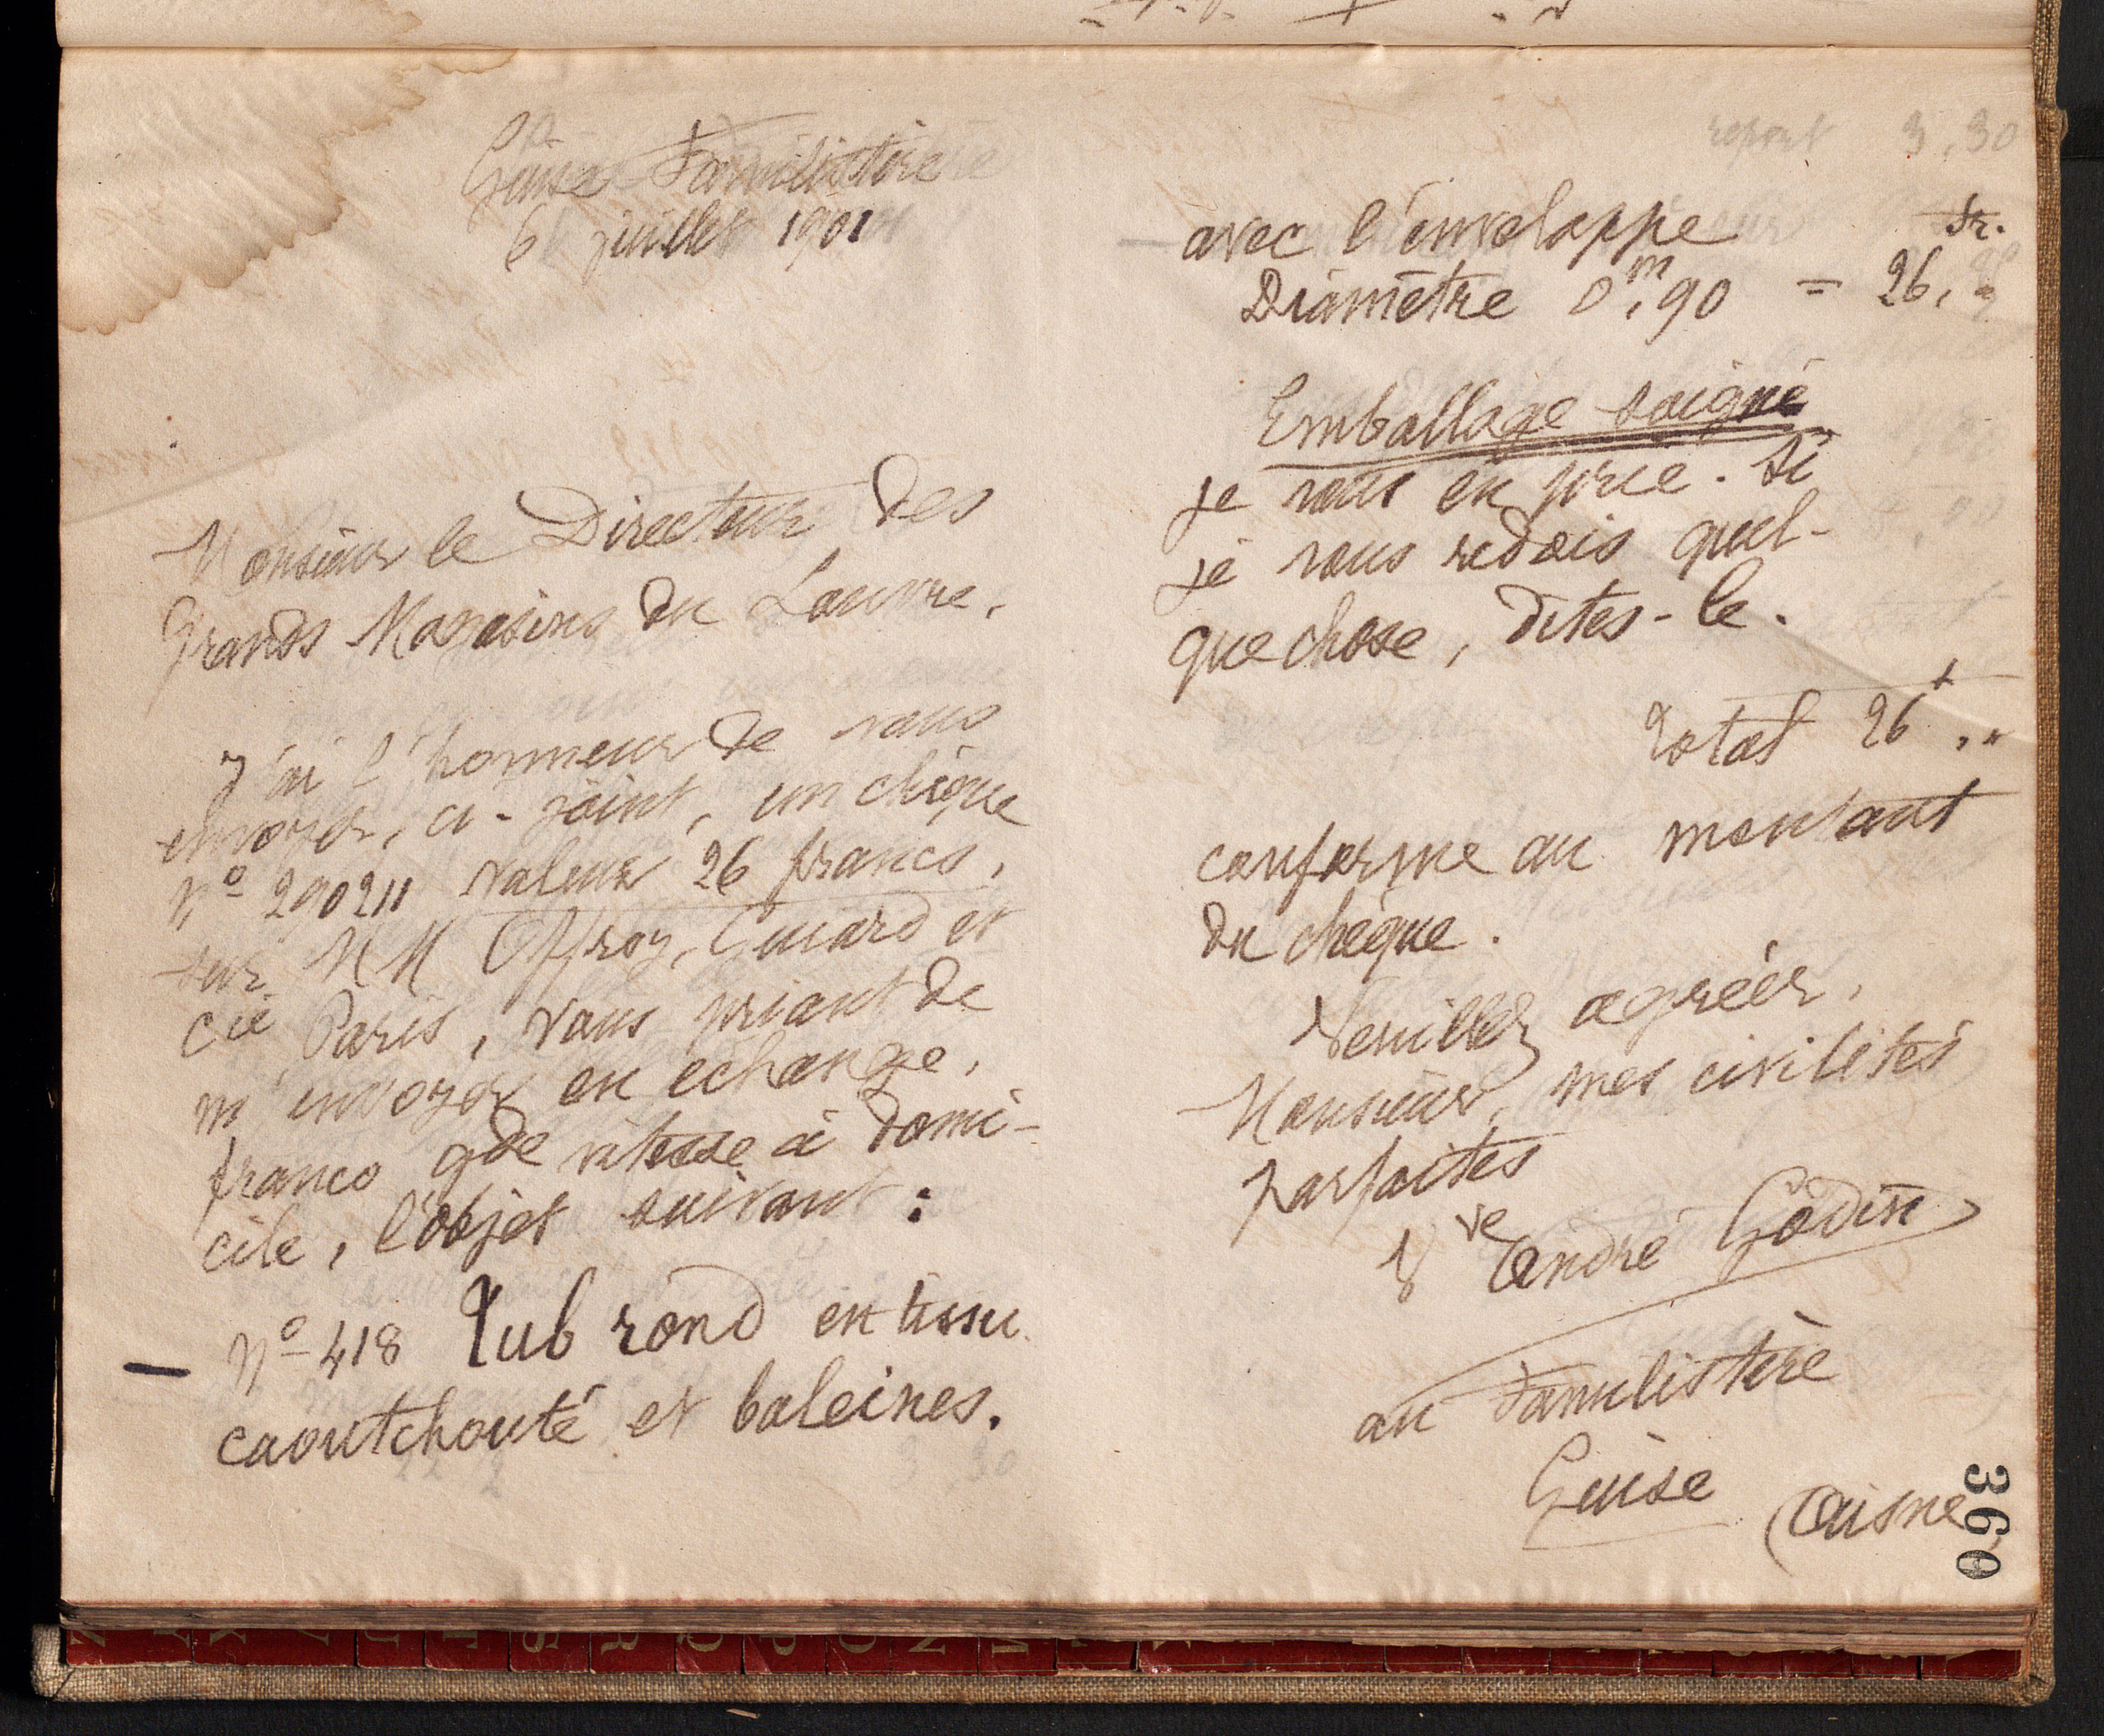 Guise Familistère
6 juillet 1901
Monsieur le Directeur des
Grands Magasins du Louvre,
J'ai l'honneur de vous
envoyer, ci-joint, un chèque
No 290211 valeur 26 francs,
sur MM Offroy, Guiard et
Cie Paris, vous priant de
m'envoyer en échange,
franco gde vitesse à domi-
cile, l'objet suivant :
No 418 Tub rond en tissu
caoutchouté et baleines.
report 3,30
avec l'enveloppe fr.
Diamètre 0m,90 = 26, "
Emballage soigné
je vous en prie. Si
je vous redois quel-
que chose, dites-le.
Total 26f, "
conforme au montant
du chèque.
Veuillez agréer,
Monsieur, mes civilités
parfaites
Vve André Godin
au Familistère
Guise (Aisne
360